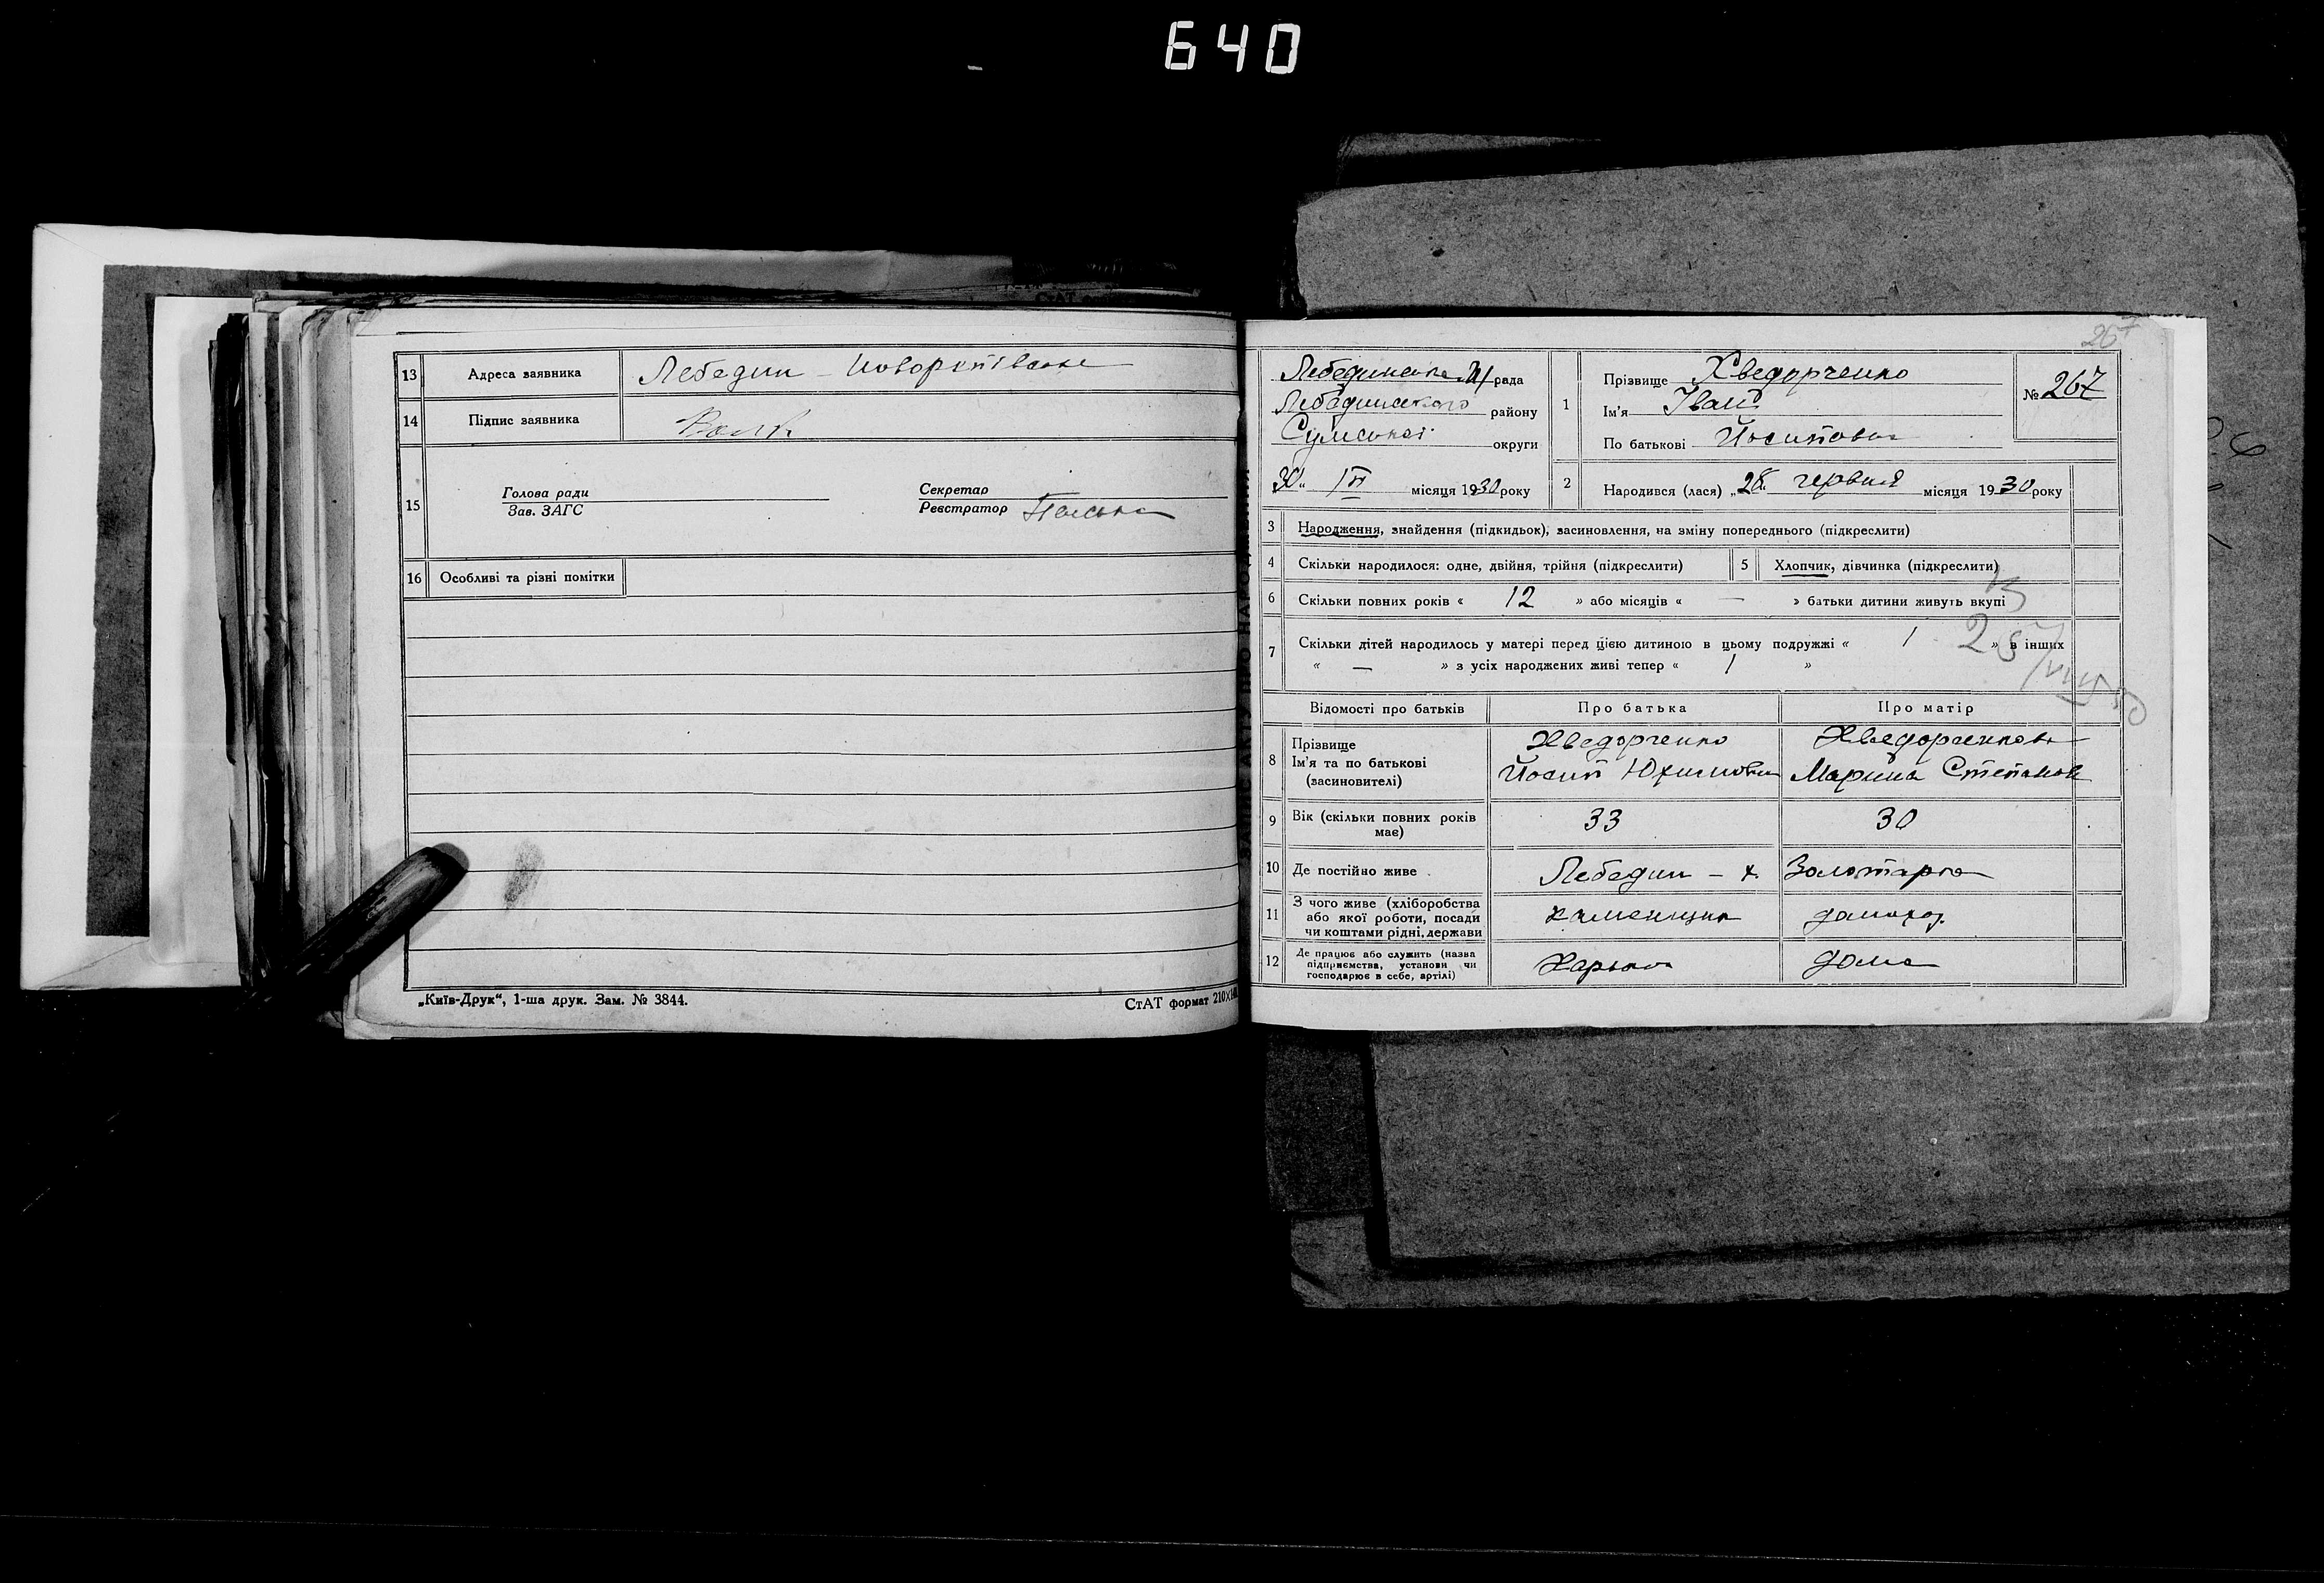 640
13 Адреса заявника Лебедин –
14 Підпис заявника
15 Голова ради Зав. ЗАГС Секретар Реєстратор
16 Особливі та різні помітки
„Київ-Друк“, 1-ша друк. Зам. № 3844. СтАТ формат 210×
267
Лебединська М/рада
Лебединського району
Сумської округи
30 місяця 1930 року
1 Прізвище Хведорченко
Ім'я Іван
По батькові Йосипович
№ 267
2 Народився (лася) „28 червня місяця 1930 року
3 Народження, знайдення (підкидьок), засиновлення, на зміну попереднього (підкреслити)
4 Скільки народилося: одне, двійня, трійня (підкреслити) 5 Хлопчик, дівчинка (підкреслити)
6 Скільки повних років « 12 » або місяців « — » батьки дитини живуть вкупі
7 Скільки дітей народилось у матері перед цією дитиною в цьому подружжі « 1 » в інших
« — » з усіх народжених живі тепер « 1 »
Відомості про батьків Про батька Про матір
8 Прізвище Хведорченко Хведорченкова
Ім'я та по батькові Йосип Юхимович Марина Степанов
(засновителі)
9 Вік (скільки повних років має) 33 30
10 Де постійно живе Лебедин – х. Золотарка
11 З чого живе (хліборобства або якої роботи, посади чи коштами рідні, держави каменщик домохоз.
12 Де працює або служить (назва підприємства, установи чи господарює в себе, артілі) Харьков дома